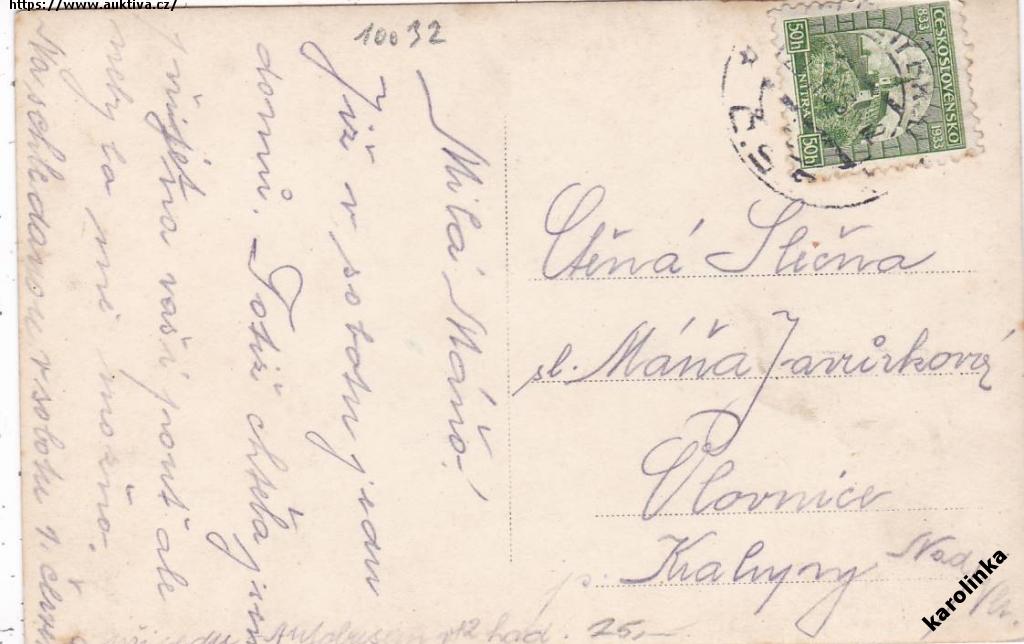 https://www.auktiva.cz/
10032
Milá Máňo!
Již v sobotu jedu
domů. Totiž chtěla jsem
přijet na vaši pouť ale
nebylo mi možno.
Na schledanou v sobotu 1. 
hod.
25,-
ČESKOSLOVENSKO
833 1933
NITRA
50h 50h
Ctěná Slečna
sl. Máňa Javůrková
Olovnice
p. Kralupy Nad
Vl.
karolinka